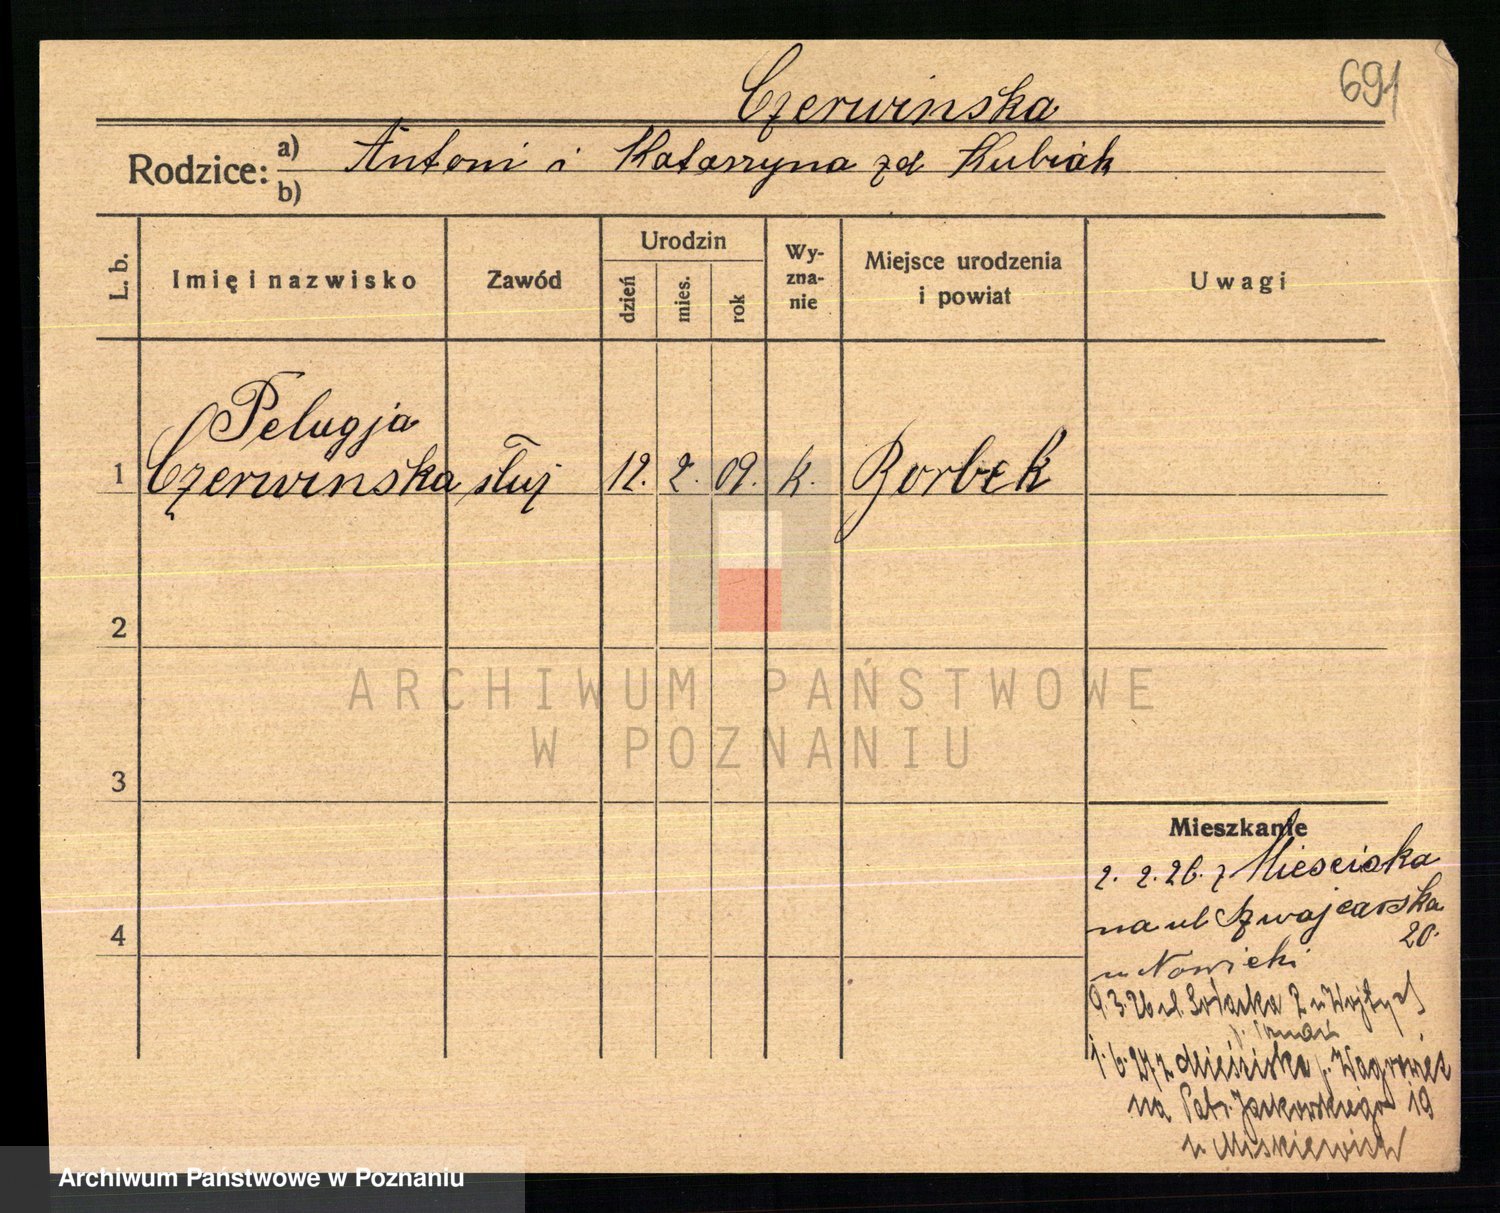 691
Czerwinska
Rodzice: a) Antoni i Katarzyna zd Kubiak
b)
L. b.
Imię i nazwisko
Zawód
Urodzin
dzień
mies.
rok
Wy-
zna-
nie
Miejsce urodzenia
i powiat
Uwagi
Pelagja
1 Czerwinska służ 12. 2. 09. k. Borbek
2
3
4
ARCHIWUM PAŃSTWOWE
W POZNANIU
Mieszkanie
2. 2. 26. z Miesciska
na ul Szwajcarska
20.
u Nowicki
9.3.26 ul. 2 u
1.6.27 z Mieściska p. Wągrowiec
na Patr. Jackowskiego 19
u Miskiewicz
Archiwum Państwowe w Poznaniu